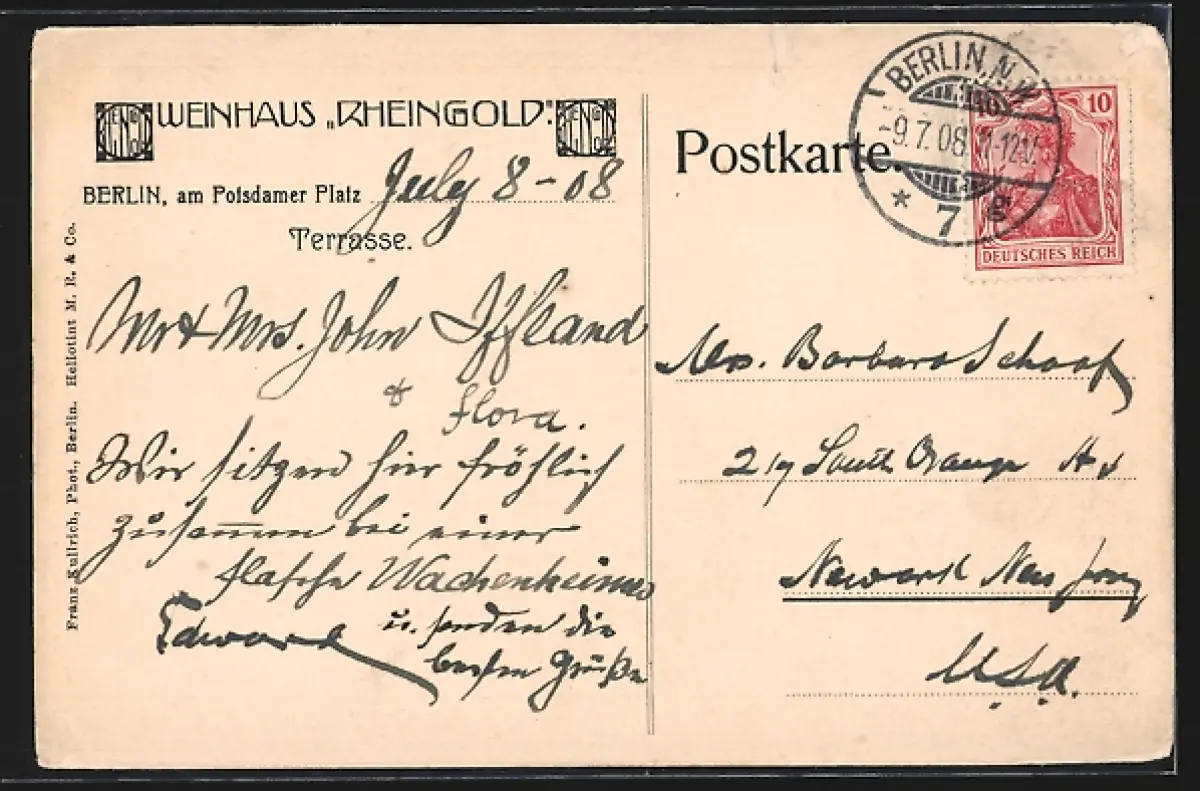 WEINHAUS „RHEINGOLD".
BERLIN, am Potsdamer Platz July 8 - 08
Terrasse.
Mr & Mrs. John Iffland
& Flora.
Wir sitzen hier fröhlich
zusammen bei einer
Flasche Wachenheimer
u. senden die
besten Grüße
Edward
Franz Kullrich, Phot., Berlin. Heliotint M. R. & Co.
Postkarte.
BERLIN, N.W.
-9.7.08. 11-12V.
* 7 g
10
DEUTSCHES REICH
Mrs. Barbara Schaaf
217 South Orange Av
Newark New Jersey
USA.